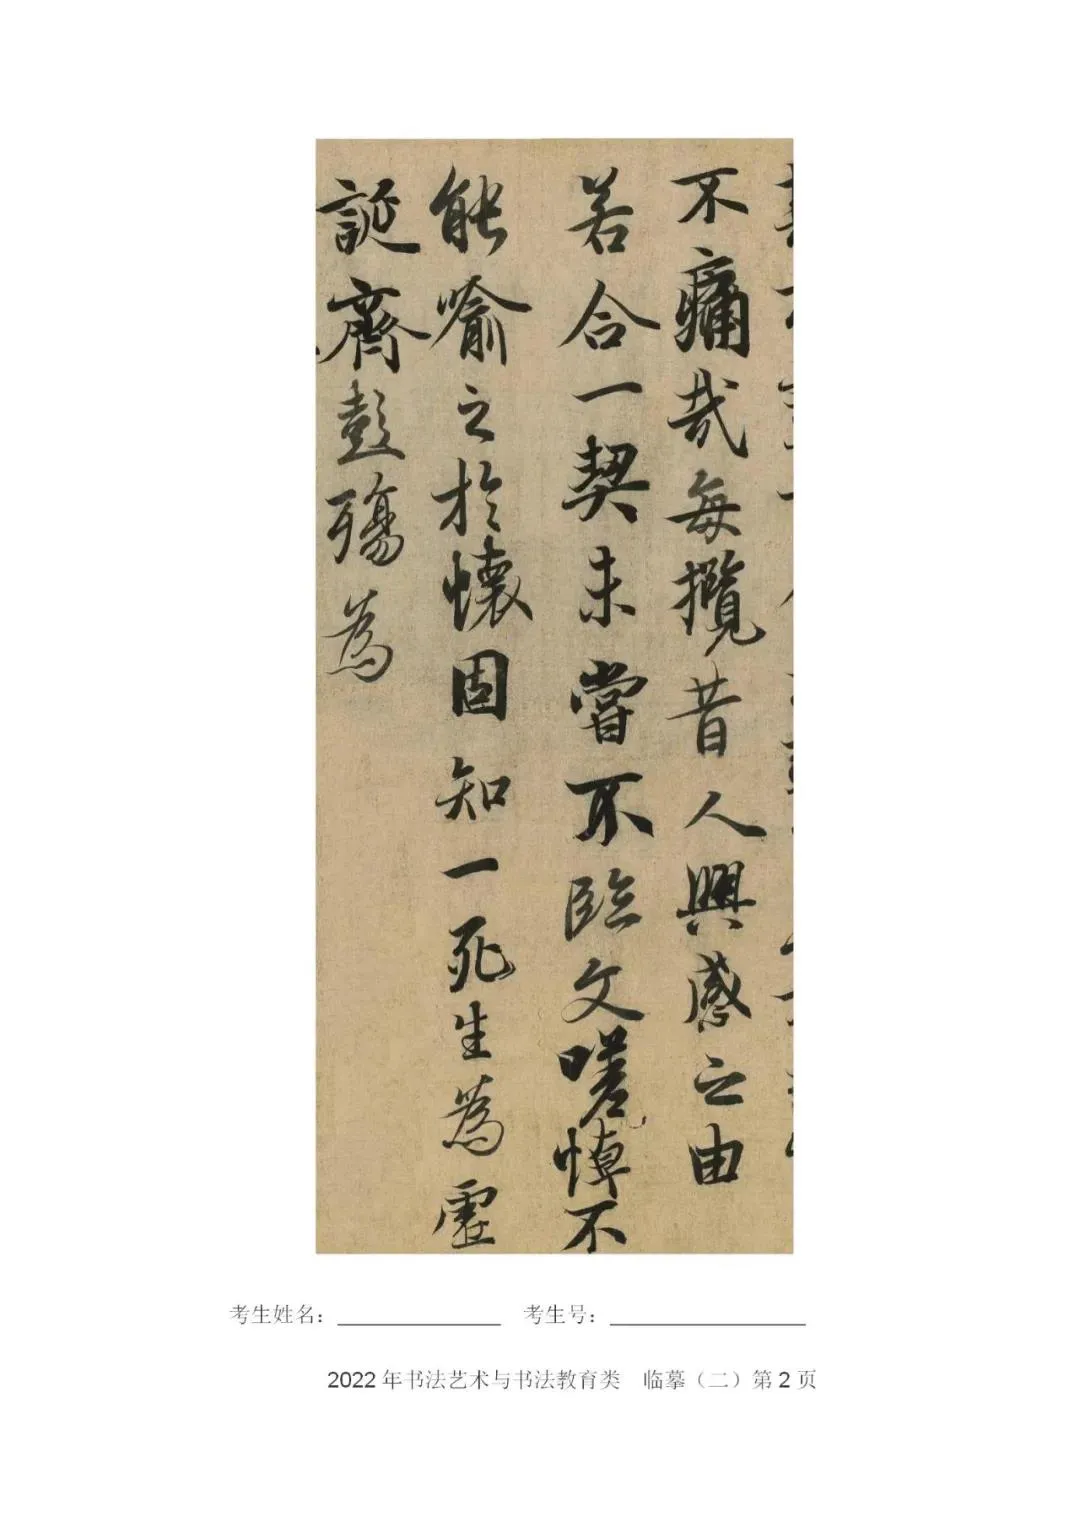 不痛哉每攬昔人興感之由
若合一契未嘗不臨文嗟悼不
能喻之於懷固知一死生為虛
誕齊彭殤為
考生姓名：____________ 考生号：______________
2022年书法艺术与书法教育类 临摹（二）第2页